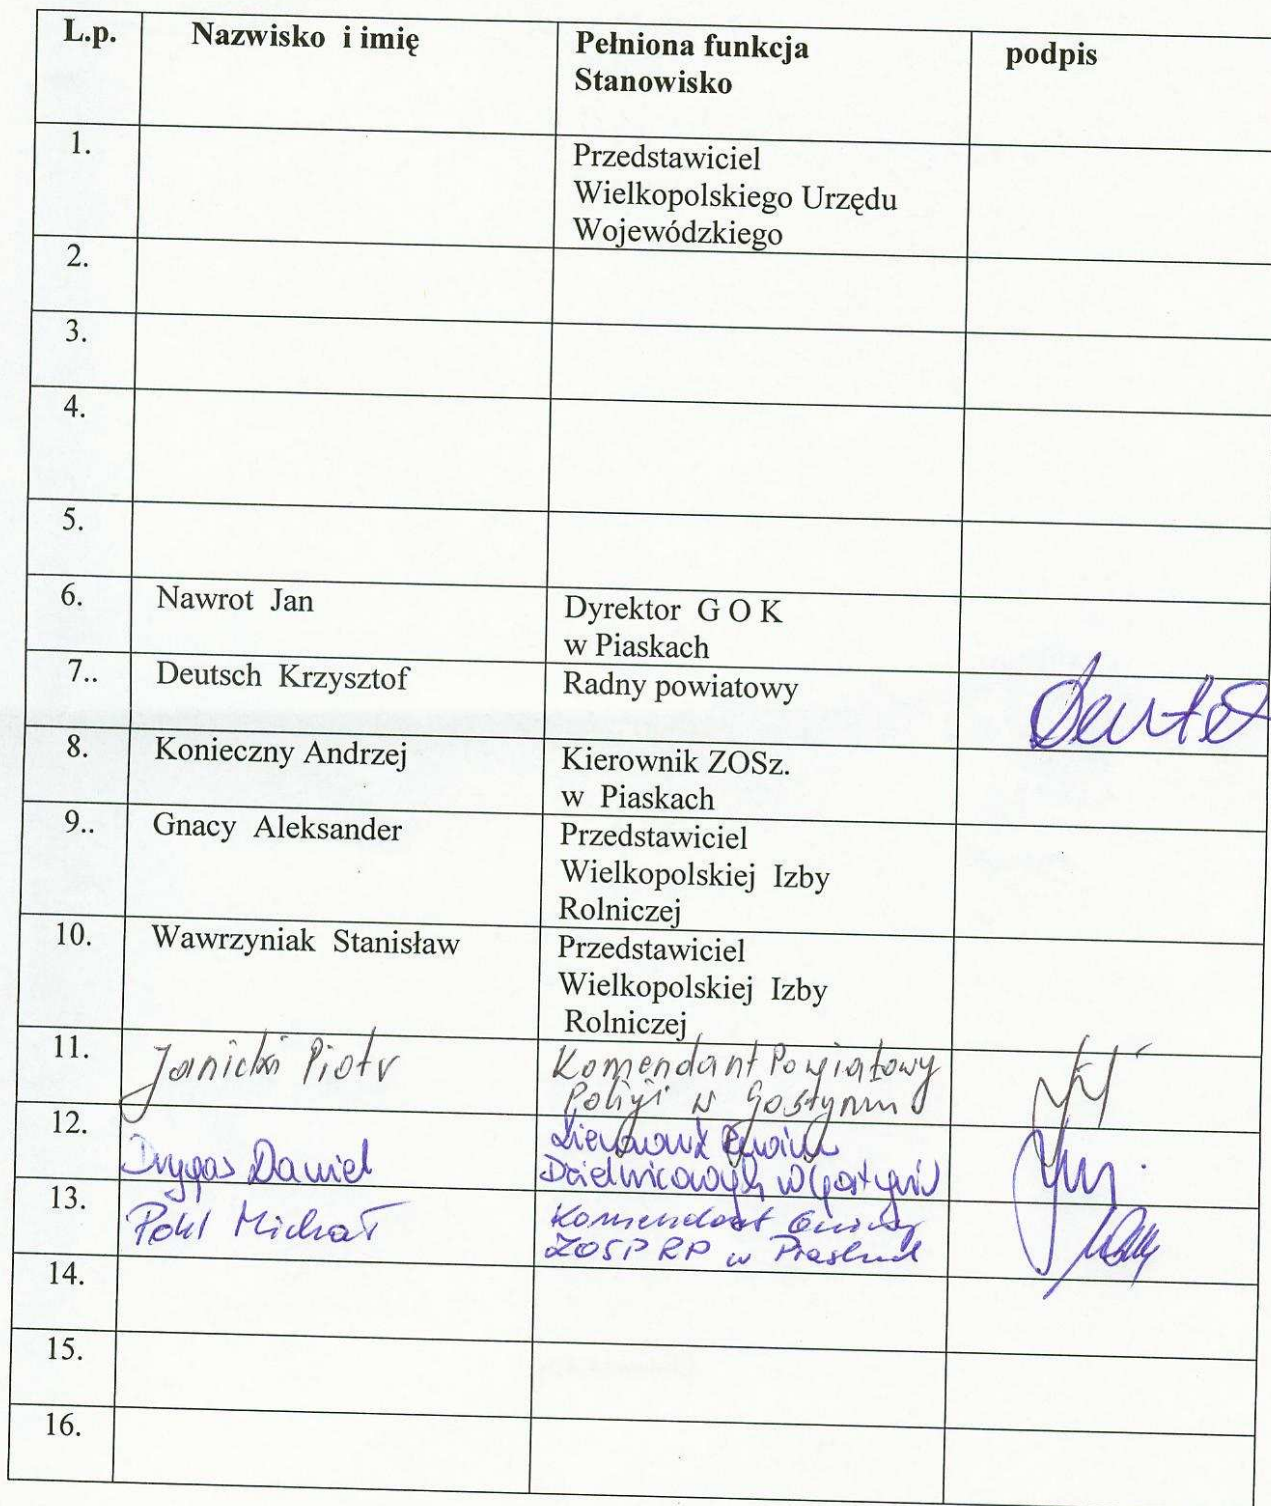 L.p. Nazwisko i imię Pełniona funkcja podpis
Stanowisko
1. Przedstawiciel
Wielkopolskiego Urzędu
Wojewódzkiego
2.
3.
4.
5.
6. Nawrot Jan Dyrektor G O K
w Piaskach
7.. Deutsch Krzysztof Radny powiatowy
8. Konieczny Andrzej Kierownik ZOSz.
w Piaskach
9.. Gnacy Aleksander Przedstawiciel
Wielkopolskiej Izby
Rolniczej
10. Wawrzyniak Stanisław Przedstawiciel
Wielkopolskiej Izby
Rolniczej
11. Janicki Piotr Komendant Powiatowy
Policji w Gostyniu
12. Drygas Daniel Kierownik
Dzielnicowych w Gostyniu
13. Pohl Michał Komendant Gminny
ZOSP RP w Piaskach
14.
15.
16.